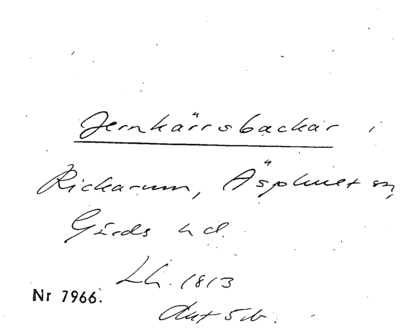 Jernkärrsbackar i
Rickarum, Äsphult sn,
Gärds hd.
Lh. 1813
Nr 7966.